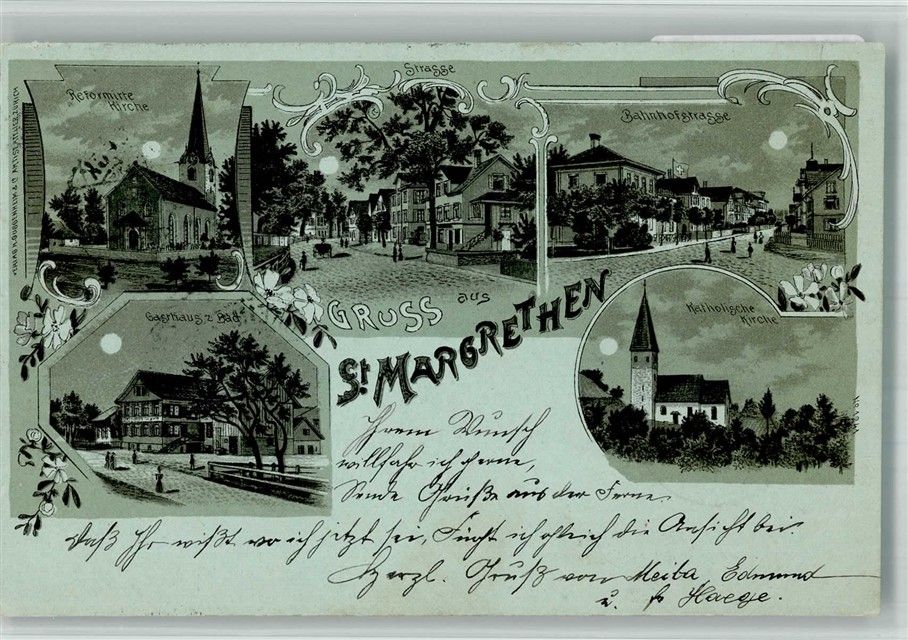 Reformirte
Kirche
Strasse
Bahnhofstrasse
Gasthaus z. Bad
GRUSS aus
St. MARGRETHEN
Katholische
Kirche
Ihrem Wunsch
willfahr ich gerne,
Sende Grüße aus der Ferne.
Daß Ihr wißt wo ich jetzt sei, Fügt ich gleich die Ansicht bei.
Herzl. Gruß von Meiba, Edmund
u. Haege.